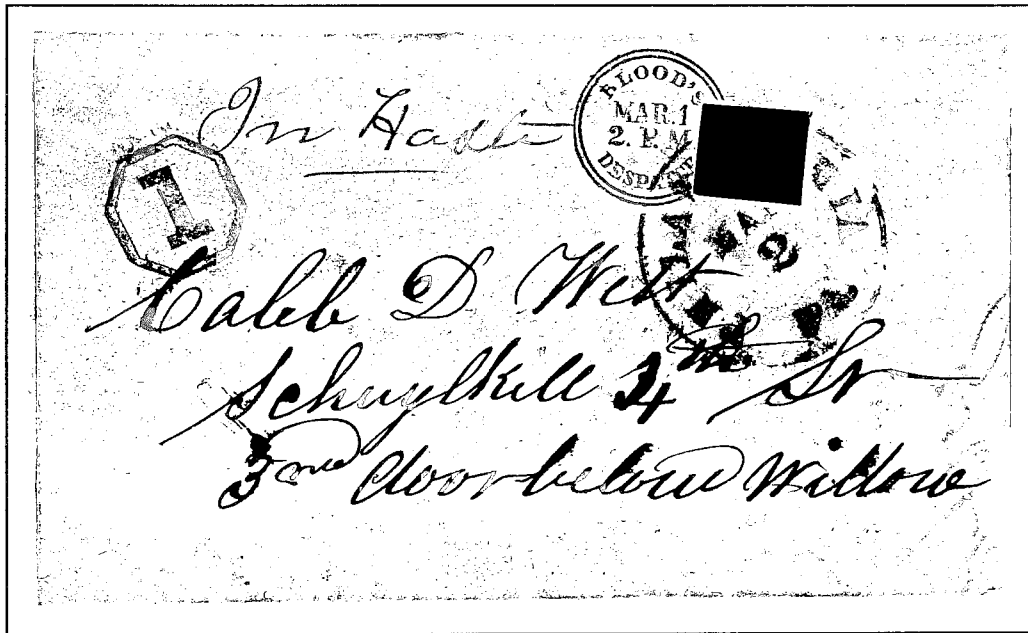 In Haste
BLOOD'S
MAR.1
2. P.M
DESPATCH
1
Caleb D
Schuylkill 4th St
3rd door below Willow